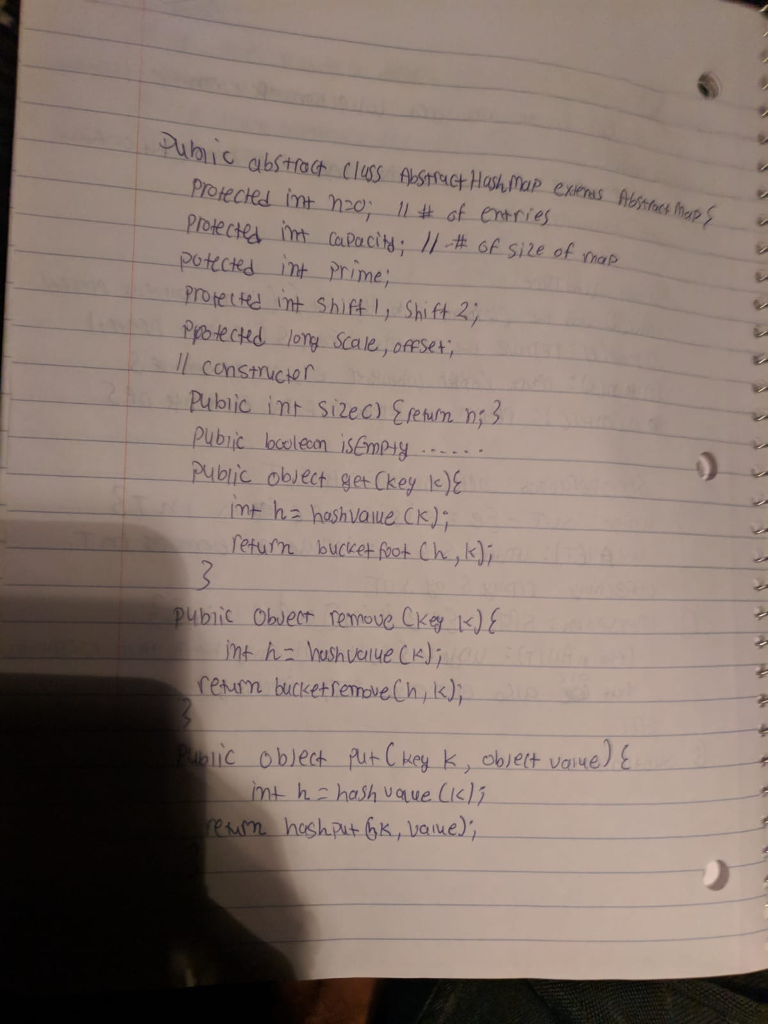 Public abstract class AbstractHashMap extends AbstractMap{
Protected int n=0; // # of entries
Protected int capacity; // # of size of map
potected int prime;
protected int shift1, shift2;
Protected long scale, offset;
// constructor
public int size() {return n;}
public boolean isEmpty ......
public object get(key k){
int h = hashvalue(k);
return bucketfoot(h,k);
}
public object remove(key k){
int h = hashvalue(k);
return bucketremove(h,k);
}
public object put(key k, object value){
int h = hashvalue(k);
return hashput(h,k, value);
}